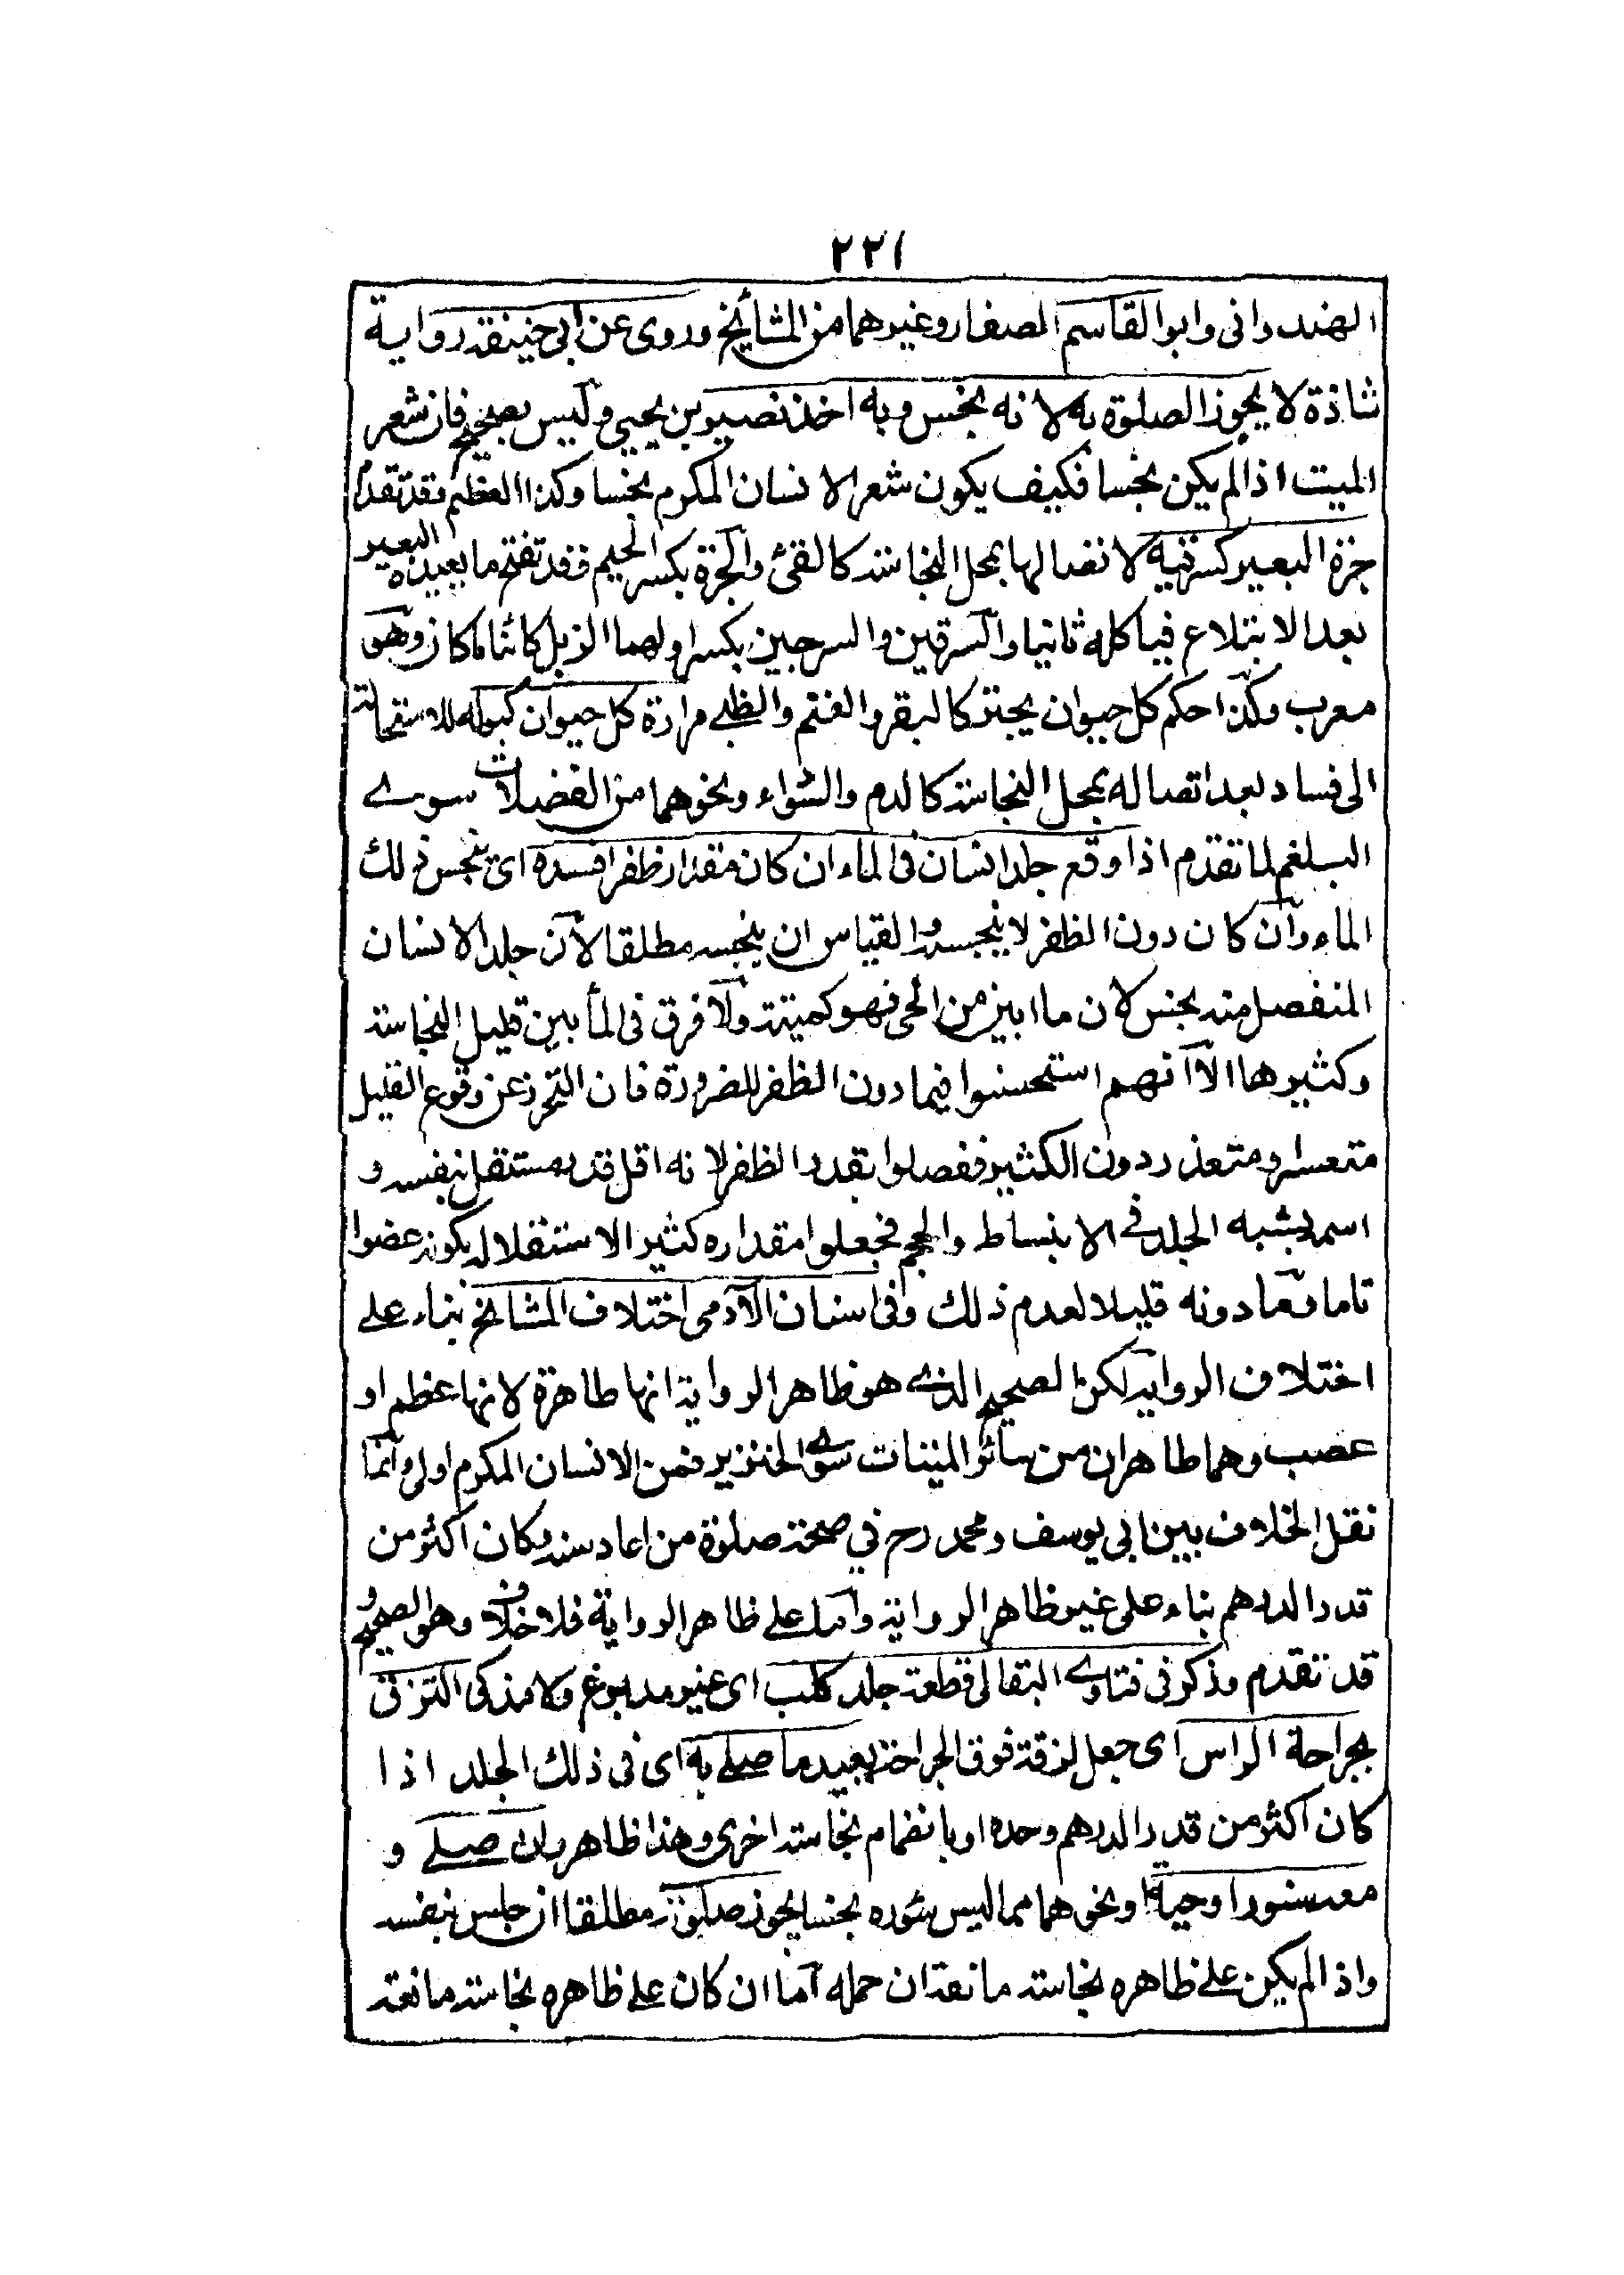 ٢٢١
الهندوانى وابو القاسم الصفار وغيرهما من المشائخ وروى عن ابى حنيفة رواية
شاذة لا يجوز الصلوة به لا نه نجس وبه اخذ نصير بن يحيى وليس بصحيح فان شعر
الميت اذا لم يكن نجسا فكيف يكون شعر الانسان المكرم نجسا وكذا العظم فقد تقدم
جزة البعير كسرقينه لاتصالها بمحل النجاسة كالقئ والجزة بكسر الجيم وقد تفتح ما يعيده البعير
بعد الابتلاع فياكله ثانيا والسرقين والسرجين بكسر اولهما الزبل كائنا ما كان وهو
معرب وكذا حكم كل حيوان يجتز كالبقر والغنم والظبى مرارة كل حيوان كبوله للاستحالة
الى فساد بعد اتصاله بمحل النجاسة كالدم والسوداء ونحوهما من الفضلات سوى
البلغم لما تقدم اذا وقع جلد انسان فى الماء ان كان مقدار ظفر افسده اى ينجس ذلك
الماء وان كان دون الظفر لا ينجسه والقياس ان ينجسه مطلقا لأن جلد الانسان
المنفصل منه نجس لان ما ابين من الحى فهو كميتته ولا فرق فى الماء بين قليل النجاسة
وكثيرها الا انهم استحسنوا فيما دون الظفر للضرورة فان التحرز عن وقوع القليل
متعسر ومتعذر دون الكثير ففصلوا بقدر الظفر لانه اقل قدر مستقل بنفسه و
اسم يشبه الجلد فى الانبساط والحجم فجعلوا مقداره كثيرا لاستقلاله بكونه عضوا
تاما وما دونه قليلا لعدم ذلك وفى اسنان الآدمى اختلاف المشائخ بناء على
اختلاف الرواية لكن الصحيح الذى هو ظاهر الرواية انها طاهرة لانها عظم او
عصب وهما طاهران من سائر الميتات سوى الخنزير فمن الانسان المكرم اولى وانما
نقل الخلاف بين ابى يوسف ومحمد رح في صحة صلوة من اعاد سنه وكان اكثر من
قدر الدرهم بناء على غير ظاهر الرواية واما على ظاهر الرواية فلا خلاف وهو الصحيح و
قد تقدم وذكر فى فتاوى البقالى قطعة جلد كلب اى غير مدبوغ ولا مذكى التزق
بجراحة الراس اى جعل لزقة فوق الجراحة يعيد ما صلى به اى فى ذلك الجلد اذا
كان اكثر من قدر الدرهم وحده او بانضمام نجاسة اخرى وهذا ظاهر ولو صلى و
معه سنور او حية او نحوهما مما ليس سؤره نجسا يجوز صلوته مطلقا ان جلس بنفسه
واذا لم يكن على ظاهره نجاسة مانعة ان حمله اما ان كان على ظاهره نجاسة مانعة